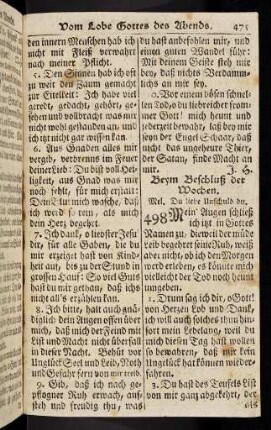 Vom Lobe Gottes des Abends. 475
den innern Menschen hab ich
nicht mit Fleiß verwahrt
nach meiner Pflicht.
5. Den Sinnen hab ich oft
zu weit den Zaum gemacht
zur Eitelkeit: Ich hab viel
geredt, gedacht, gehört, ge-
sehen und vollbracht was mir
nicht wohl gestanden an, und
ich itzt nicht gar wissen kan.
6. Aus Gnaden alles mir
vergib, verbrenns im Feuer
deiner Lieb: Du bist voll Hei-
ligkeit, aus Gnad was mir
noch fehlt, für mich erzält:
mich wasche, daß
ich werd so rein, als mich
dein Herz begehrt.
7. Ich dank, o liebster Jesu
dir, für alle Gaben, die du
mir erzeiget hast von Kind-
heit auf, bis zu der Stund in
grossen Hauf: So viel Gunst
hast du mir gethan, daß ichs
nicht all's erzählen kan.
8. Ich bitte, halt auch gnä-
diglich dein Augen offen über
mich, daß mich der Feind mit
List und Macht nicht überfall
in dieser Nacht. Behüt vor
Unglück Seel und Leib, Noth
und Gefahr fern von mir treib.
9. Gib, daß ich nach ge-
pflogner Ruh erwach, auf-
steh und freudig thu, was
du hast anbefohlen mir, und
einen guten Wandel führ:
Mit deinem Geiste steh mir
bey, daß nichts Verdamm-
lichs an mir sey.
Vor einem bösen schnel-
len Tod, o lieber from-
mer Gott! mich heunt und
immerdar bewahr, laß bey mir
seyn der Engel Schaar, daß
nicht das ungeheure Thier,
der Satan, finde Macht an
mir. J. H.
Beym Beschluß der
Wochen.
Mel. Du liebe Unschuld du.
498 Mein Augen schließ
ich itzt in Gottes
Namen zu, dieweil der müde
Leib begehret seine Ruh, weiß
aber nicht, ob ich den Morgen
werd erleben, es könte mich
vielleicht der Tod noch heunt
umgeben.
2. Drum sag ich dir, o Gott!
von Herzen Lob und Dank,
ich will auch solches thun hin-
fort mein Lebelang, weil du
mich diesen Tag hast wollen
so bewahren, daß mir kein
Ungelück hat können wieder-
fahren.
3. Du hast des Teufels List
von mir ganz abgekehrt, der
als